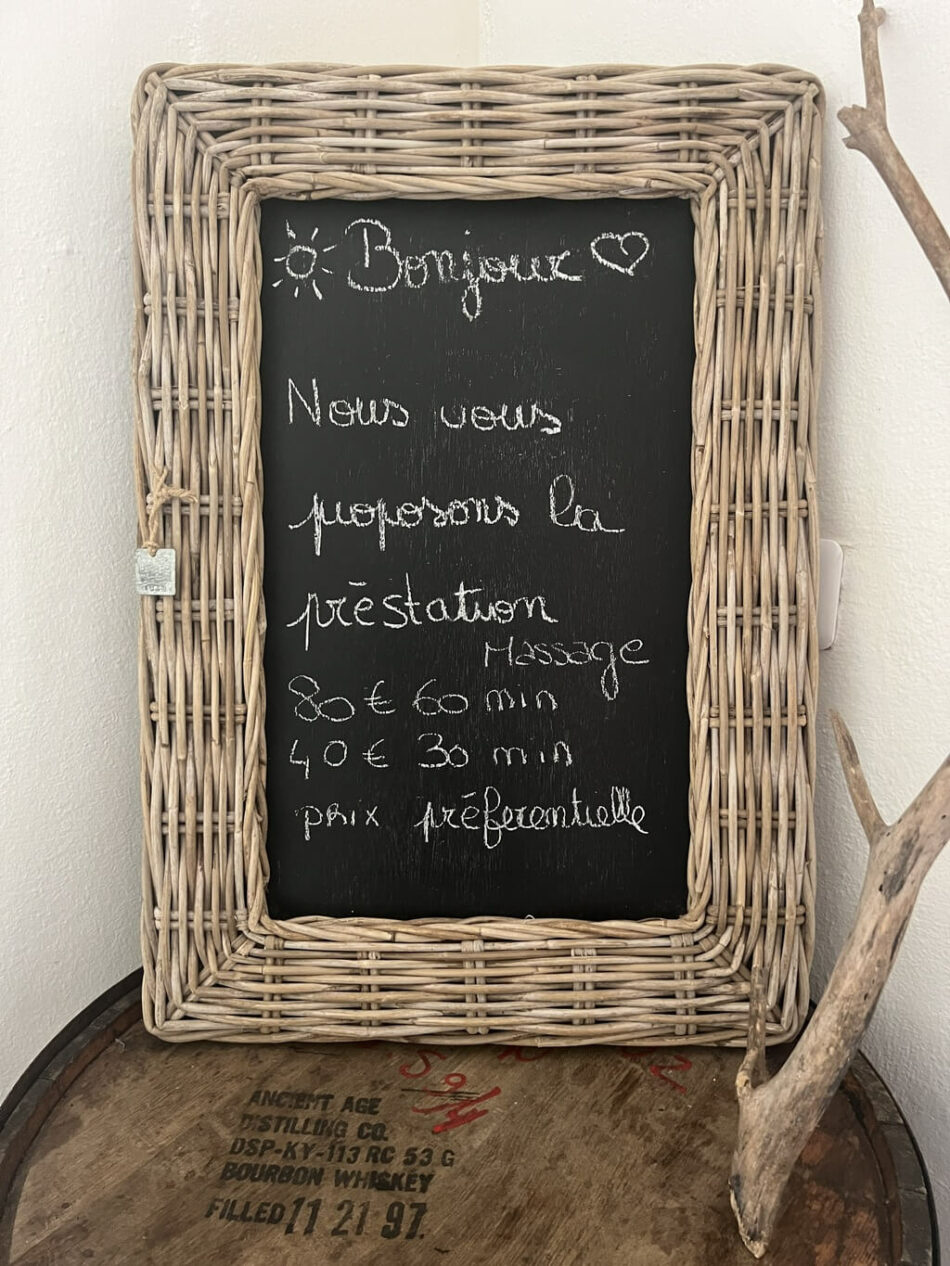 Bonjour
Nous vous
proposons la
préstation
Massage
80 € 60 min
40 € 30 min
prix préferentielle
ANCIENT AGE
DISTILLING CO.
DSP-KY-113 RC 53 G
BOURBON WHISKEY
FILLED 11 21 97.